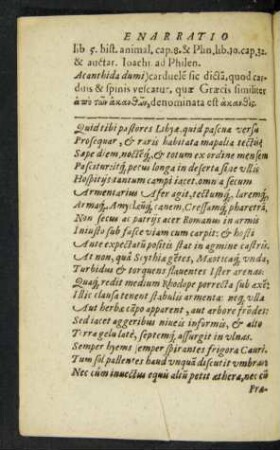 ENARRATIO
lib 5. hist. animal. cap. 8. & Plin. lib. 10. cap. 32.
& auctar. Ioachi. ad Philen.
Acanthida dumi) carduelē sic dictā, quod car-
duis & spinis vescatur, quæ Græcis similiter
ἀπὸ τῶν ἀκανθῶν, denominata est ἀκανθίς.
Quid tibi pastores Libyæ quid pascua versu
Prosequar, & raris habitata mapalia tectis?
Sæpe diem, noctéq́, & totum ex ordine mensem
Pascitur: itq́, pecus longa in deserta sine vllis
Hospitijs: tantum campi iacet. omnia secum
Armentarius Afer agit, tectumq́, laremq́,
Armaq́, Amyclæūq́, canem, Cressamq́, pharetrā,
Non secus ac patrijs acer Romanus in armis
Iniusto sub fasce viam cum carpit: & hosti
Ante expectatū positis stat in agmine castris.
At non, quà Scythiæ gētes, Mæoticaq́, vnda,
Turbidus & torquens flauentes Ister arenas:
Quaq́, redit medium Rhodope porrecta sub axē:
Illic clausa tenent stabulis armenta: neq́, vlla
Aut herbæ cāpo apparent, aut arbore frōdes:
Sed iacet aggeribus niueis informis, & alto
Terra gelu latè, septemq́, assurgit in vlnas.
Semper hyems semper spirantes frigora Cauri.
Tum sol pallentes haud vnquā discutit vmbras:
Nec cùm inuectus equis altū petit æthera, nec cū
Præ-